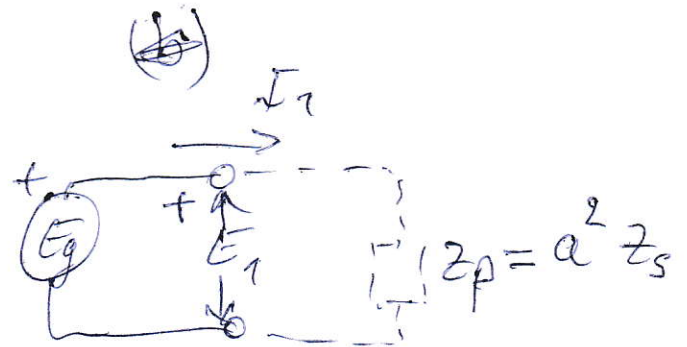 (b)
I₁
+
+
E_g
E₁
Z_p = a² Z_s